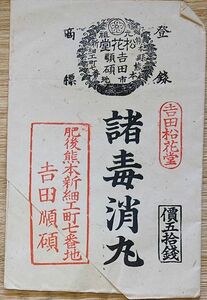 登録
商標
松花堂
吉田順碩
吉田松花堂
諸毒消丸
價五拾銭
肥後熊本新細工町七番地
吉田順碩